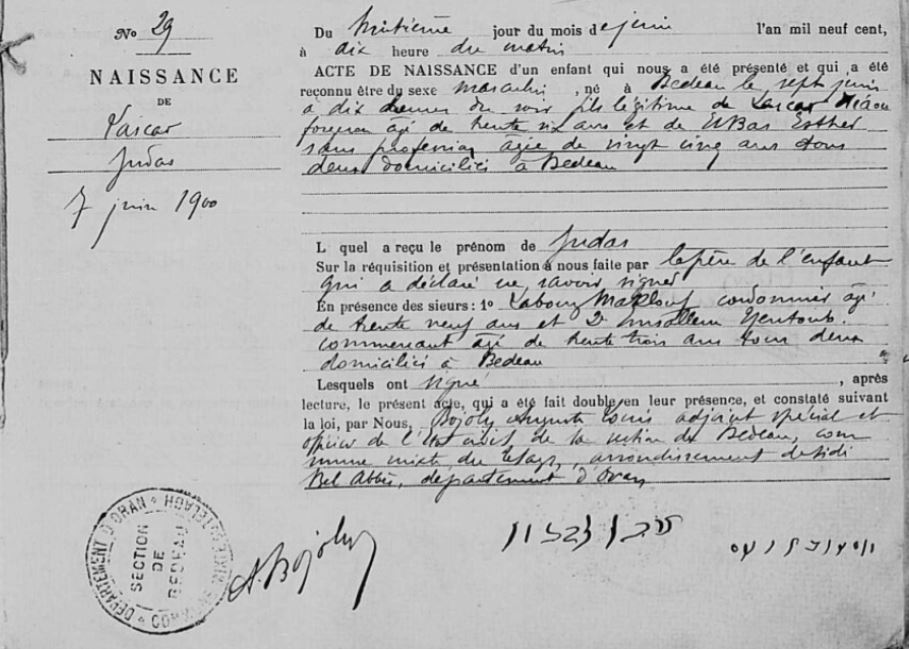 No 29
NAISSANCE
DE
Lascar
Judas
7 juin 1900
Du huitième jour du mois de juin l'an mil neuf cent,
à dix heure du matin
ACTE DE NAISSANCE d'un enfant qui nous a été présenté et qui a été
reconnu être du sexe masculin, né à Bedeau le sept juin
à dix heures du soir fils légitime de Lascar
forgeron âgé de trente six ans et de Esther
sans profession âgée de vingt cinq ans tous
deux domiciliés à Bedeau
L quel a reçu le prénom de Judas
Sur la réquisition et présentation à nous faite par le père de l'enfant
qui a déclaré ne savoir signer
En présence des sieurs : 1o Maklouf cordonnier âgé
de trente neuf ans et 2o
commerçant âgé de trente trois ans tous deux
domiciliés à Bedeau
Lesquels ont signé, après
lecture, le présent acte, qui a été fait double en leur présence, et constaté suivant
la loi, par Nous, Bojoly Auguste Louis adjoint spécial et
officier de l'état civil de la section de Bedeau, com
mune mixte du Telagh, arrondissement de Sidi
Bel Abbès, département d'Oran
A. Bojoly
DÉPARTEMENT D'ORAN
SECTION
DE
BEDEAU